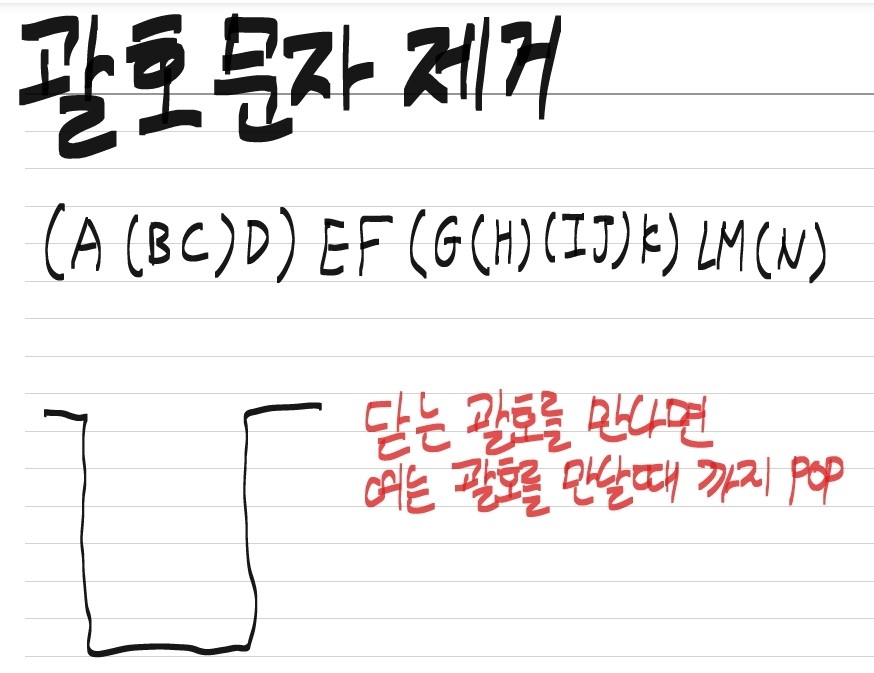 괄호문자 제거
(A (BC)D) EF (G(H)(IJ)K) LM(N)
닫는 괄호를 만나면
여는 괄호를 만날때 까지 POP